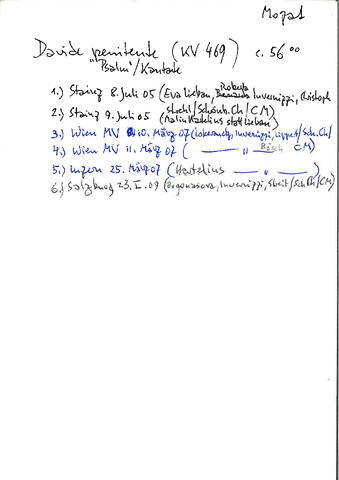 Mozart
Davide penitente (KV 469) c. 56°°
"Psalm"/Kantate
1.) Stainz 8. Juli 05 (Eva Lieban, Roberta Invernizzi, Christoph
2.) Stainz 9. Juli 05 Strehl/Schönb. Ch/CM)
(Malin Hartelius statt Lieban)
3.) Wien MV 10. März 07 (Invernizzi, Lippert/Sch. Ch/
4.) Wien MV 11. März 07 ( — " — Bösch CM)
5.) Luzern 25. März 07 (Hartelius — " — )
6.) Salzburg 23. I. 09 (Organasova, Invernizzi, Streit/Sch Ch/CM)